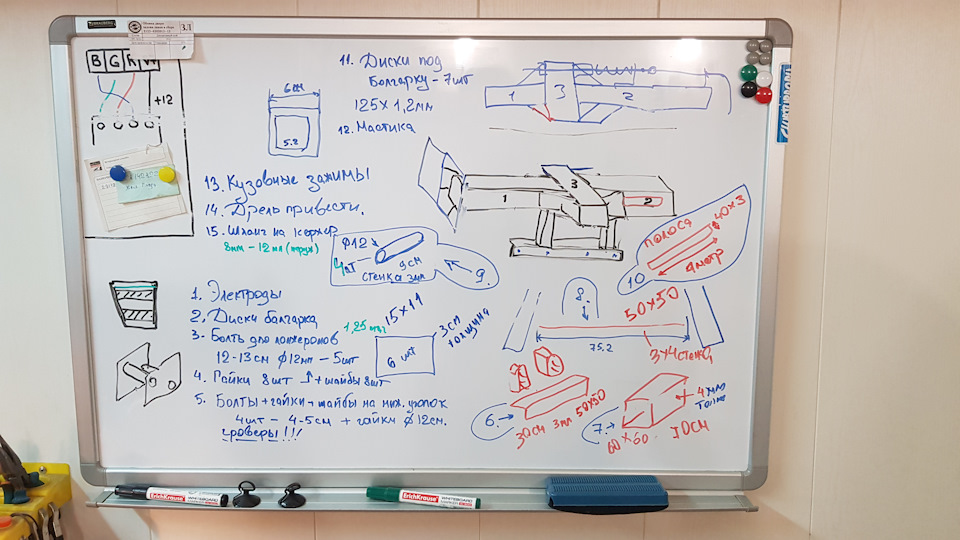 B G R W
+12
11. Диски под
Болгарку - 7шт
125 x 1,2мм
12. Мастика
6см
5.2
1
3
2
13. Кузовные зажимы
14. Дрель привести.
15. Шланг на керхер
8мм - 12мм (наруж)
1
3
2
ф12
4шт
9см
стенка 3мм
9.
полоса
40x3
4 метр
10
1. Электроды
2. Диски балгарка
3- Болты для лонжеронов
12-13см ф12мм - 5шт
4. Гайки 8шт + шайбы 8шт
5. Болты + гайки + шайбы на ниж. упорок
4шт - 4-5см + гайки ф12см.
гроверы!!!
15x11
6 шт
3см
толщина
8.
50x50
75.2
3x4 стенка
6.
30см 3мм 50x50
7.
60x60
10см
4мм
ErichKrause
WHITEBOARD
MARKER
ErichKrause
WHITEBOARD
MARKER